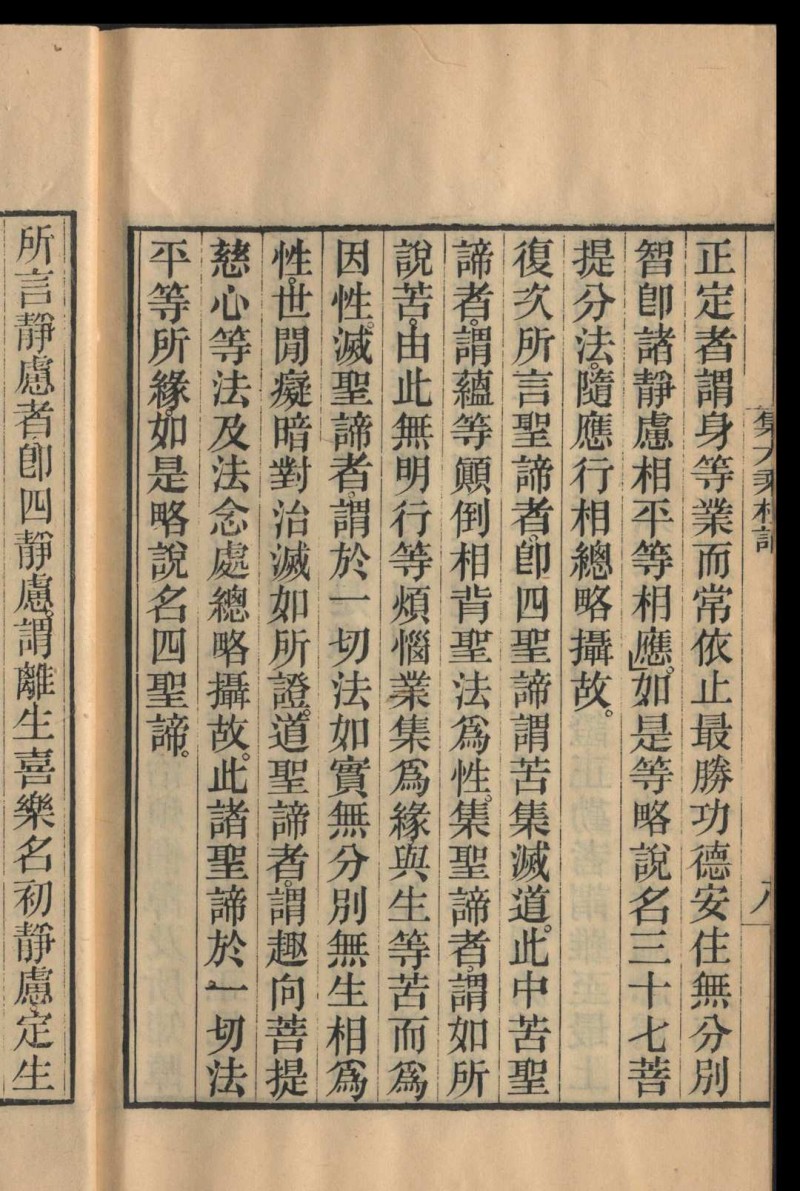 集大乘相論
八
正定者謂身等業而常依止最勝功德安住無分別
智卽諸靜慮相平等相應。如是等略說名三十七菩
提分法。隨應行相總略攝故。
復次所言聖諦者。卽四聖諦謂苦集滅道。此中苦聖
諦者。謂蘊等顚倒相背聖法爲性。集聖諦者。謂如所
說苦。由此無明行等煩惱業集爲緣與生等苦而爲
因性。滅聖諦者。謂於一切法如實無分別無生相爲
性。世閒癡暗對治滅如所證。道聖諦者。謂趣向菩提
慈心等法及法念處總略攝故。此諸聖諦於一切法
平等所緣。如是略說名四聖諦。
所言靜慮者。卽四靜慮。謂離生喜樂名初靜慮定生